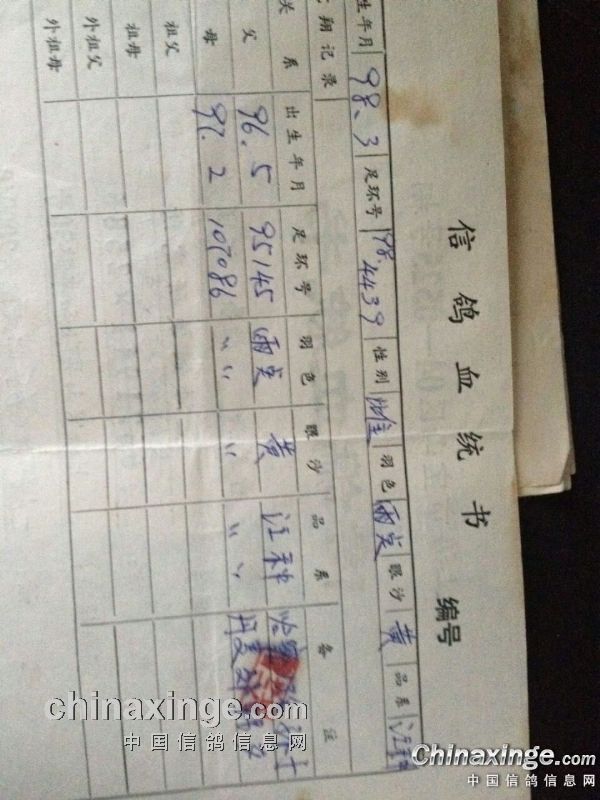 信鸽血统书
编号
生年月 98.3 足环号 98.4439 性别 雄 羽色 雨点 眼沙 黄 品系 汪种
翔记录
关系 出生年月 足环号 羽色 眼沙 品系 备注
父 96.5 95145 雨点 黄 汪种
母 97.2 107086 〃 〃 〃
祖父
祖母
外祖父
外祖母
chinaxinge.com
中国信鸽信息网
Chinaxinge.com
中国信鸽信息网